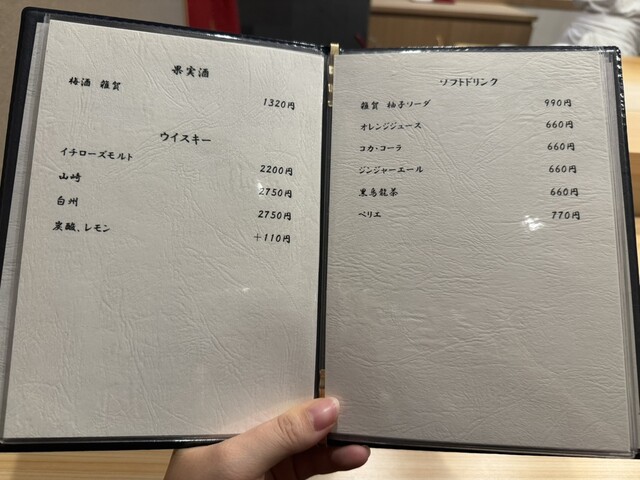 果実酒
梅酒 雑賀 1320円
ウイスキー
イチローズモルト 2200円
山崎 2750円
白州 2750円
炭酸、レモン +110円
ソフトドリンク
雑賀 柚子ソーダ 990円
オレンジジュース 660円
コカ・コーラ 660円
ジンジャーエール 660円
黒烏龍茶 660円
ペリエ 770円